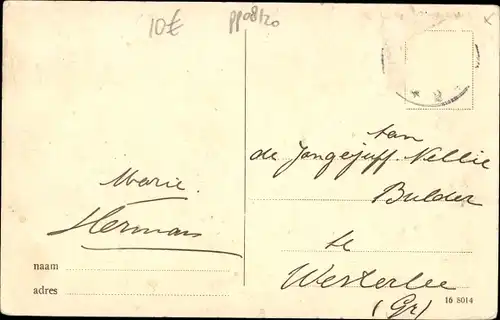 10€
pp08/20
x
* 2
Aan
de Jongejuff. Nellie
Bulder
te
Westerlee
(Gr)
Marie.
Herman
naam
adres
16 8014